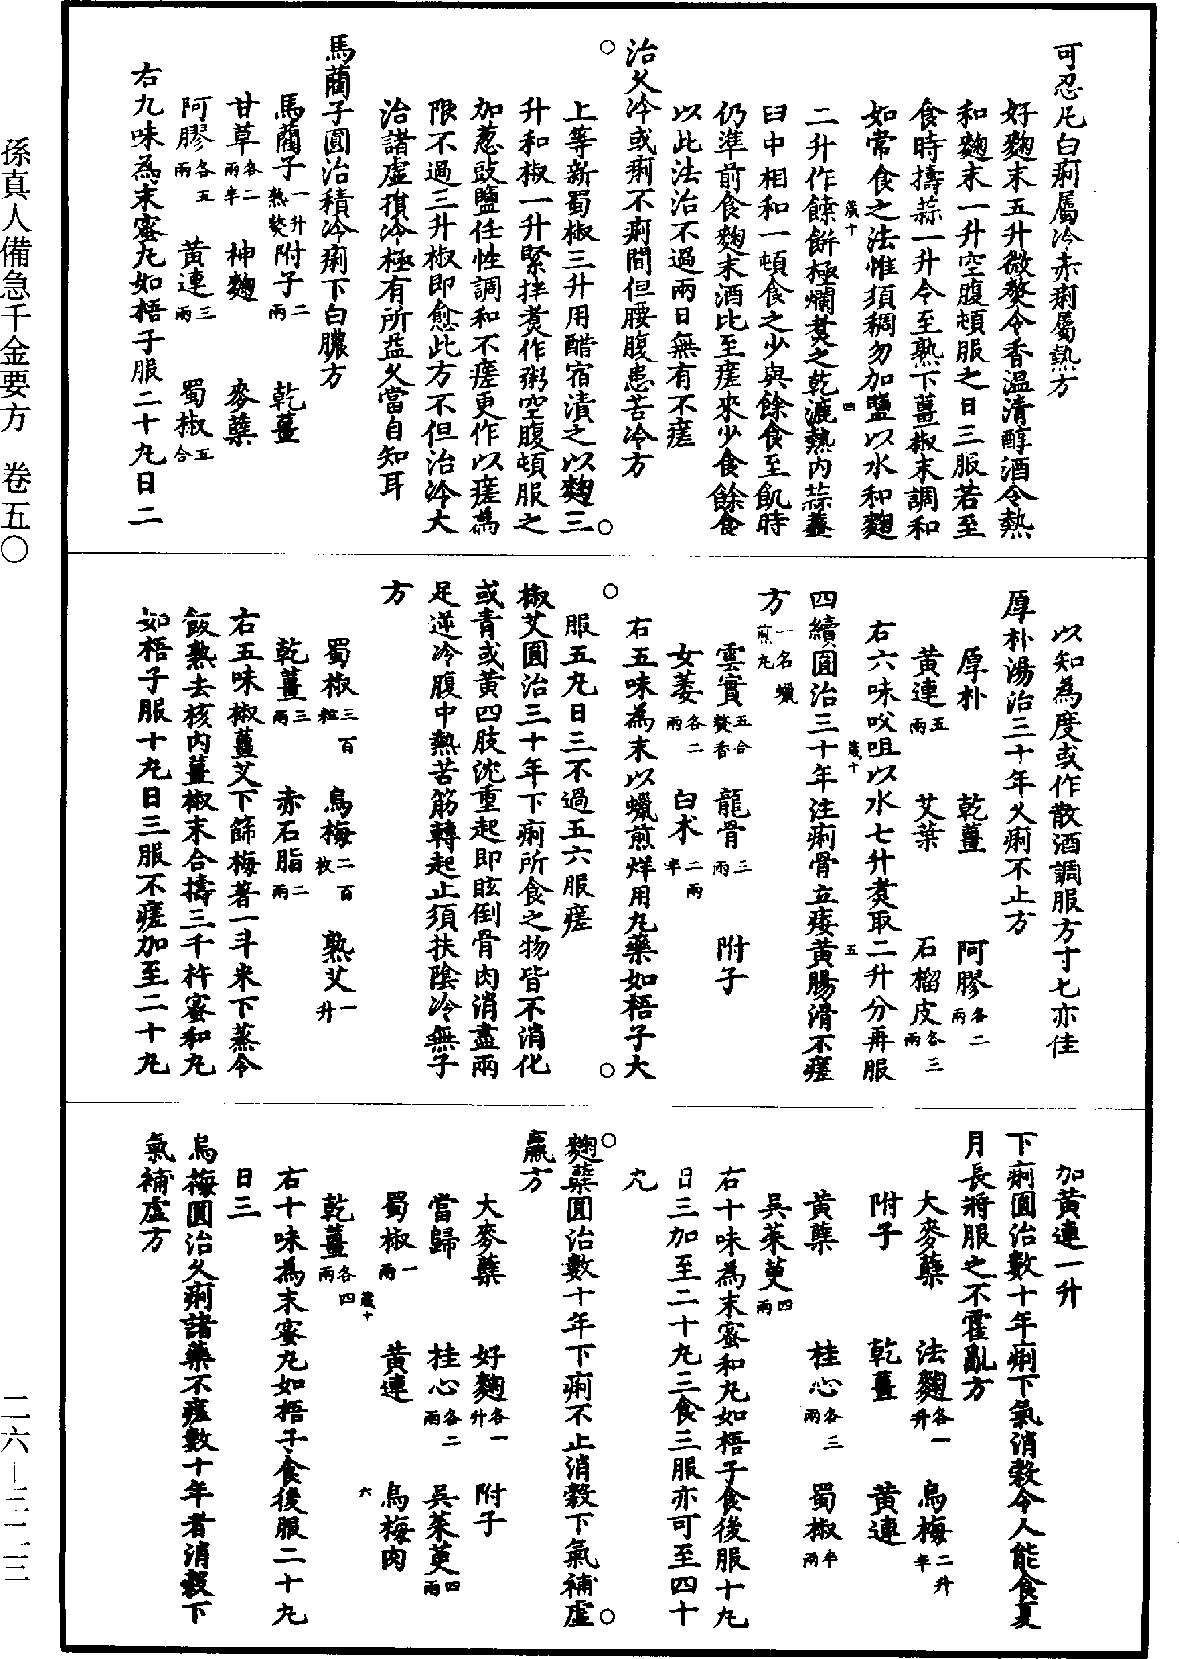 可忍凡白痢屬冷赤痢屬熱方
好麴末五升微熬令香溫清醇酒令熱
和麴末一升空腹頓服之日三服若至
食時擣蒜一升令至熟下薑椒末調和
如常食之法惟須稠勿加鹽以水和麴
二升作餅極爛煮之乾漉熱內蒜虀
臼中相和一頓食之少與餘食至飢時
仍準前食麴末酒比至瘥來少食餘食
以此法治不過兩日無有不瘥
治久冷或痢不痢間但腰腹患苦冷方
上等新蜀椒三升用醋宿漬之以麴三
升和椒一升緊拌煮作粥空腹頓服之
加蔥豉鹽任性調和不瘥更作以瘥為
限不過三升椒即愈此方不但治冷大
治諸虛損冷極有所益久當自知耳
馬藺子圓治積冷痢下白膿方
馬藺子一升熟熬 附子二兩 乾薑
甘草各二兩半 神麴 麥蘗
阿膠各五兩 黃連三兩 蜀椒五合
右九味為末蜜丸如梧子服二十丸日二
藏十
四
以知為度或作散酒調服方寸匕亦佳
厚朴湯治三十年久痢不止方
厚朴 乾薑 阿膠各二兩
黃連五兩 艾葉 石榴皮各三兩
右六味㕮咀以水七升煮取二升分再服
藏十
五
四續圓治三十年注痢骨立痿黃腸滑不瘥
方一名蠟煎丸
雲實五合熬香 龍骨三兩 附子
女萎各二兩 白朮二兩半
右五味為末以蠟煎烊用丸藥如梧子大
服五丸日三不過五六服瘥
椒艾圓治三十年下痢所食之物皆不消化
或青或黃四肢沈重起即眩倒骨肉消盡兩
足逆冷腹中熱苦筋轉起止須扶陰冷無子
方
蜀椒三百粒 烏梅二百枚 熟艾一升
乾薑三兩 赤石脂二兩
右五味椒薑艾下篩梅著一斗米下蒸令
飯熟去核內薑椒末合擣三千杵蜜和丸
如梧子服十丸日三服不瘥加至二十丸
加黃連一升
下痢圓治數十年痢下氣消穀令人能食夏
月長將服之不霍亂方
大麥蘗 法麴各一升 烏梅二升半
附子 乾薑 黃連
黃蘗 桂心各三兩 蜀椒半兩
吳茱萸四兩
右十味為末蜜和丸如梧子食後服十丸
日三加至二十丸三食三服亦可至四十
丸
麴蘗圓治數十年下痢不止消穀下氣補虛
羸方
大麥蘗 好麴各一升 附子
當歸 桂心各二兩 吳茱萸四兩
蜀椒一兩 黃連 烏梅肉
乾薑各四兩
藏十
六
右十味為末蜜丸如梧子食後服二十丸
日三
烏梅圓治久痢諸藥不瘥數十年者消穀下
氣補虛方
孫真人備急千金要方 卷五〇
二六—三二三